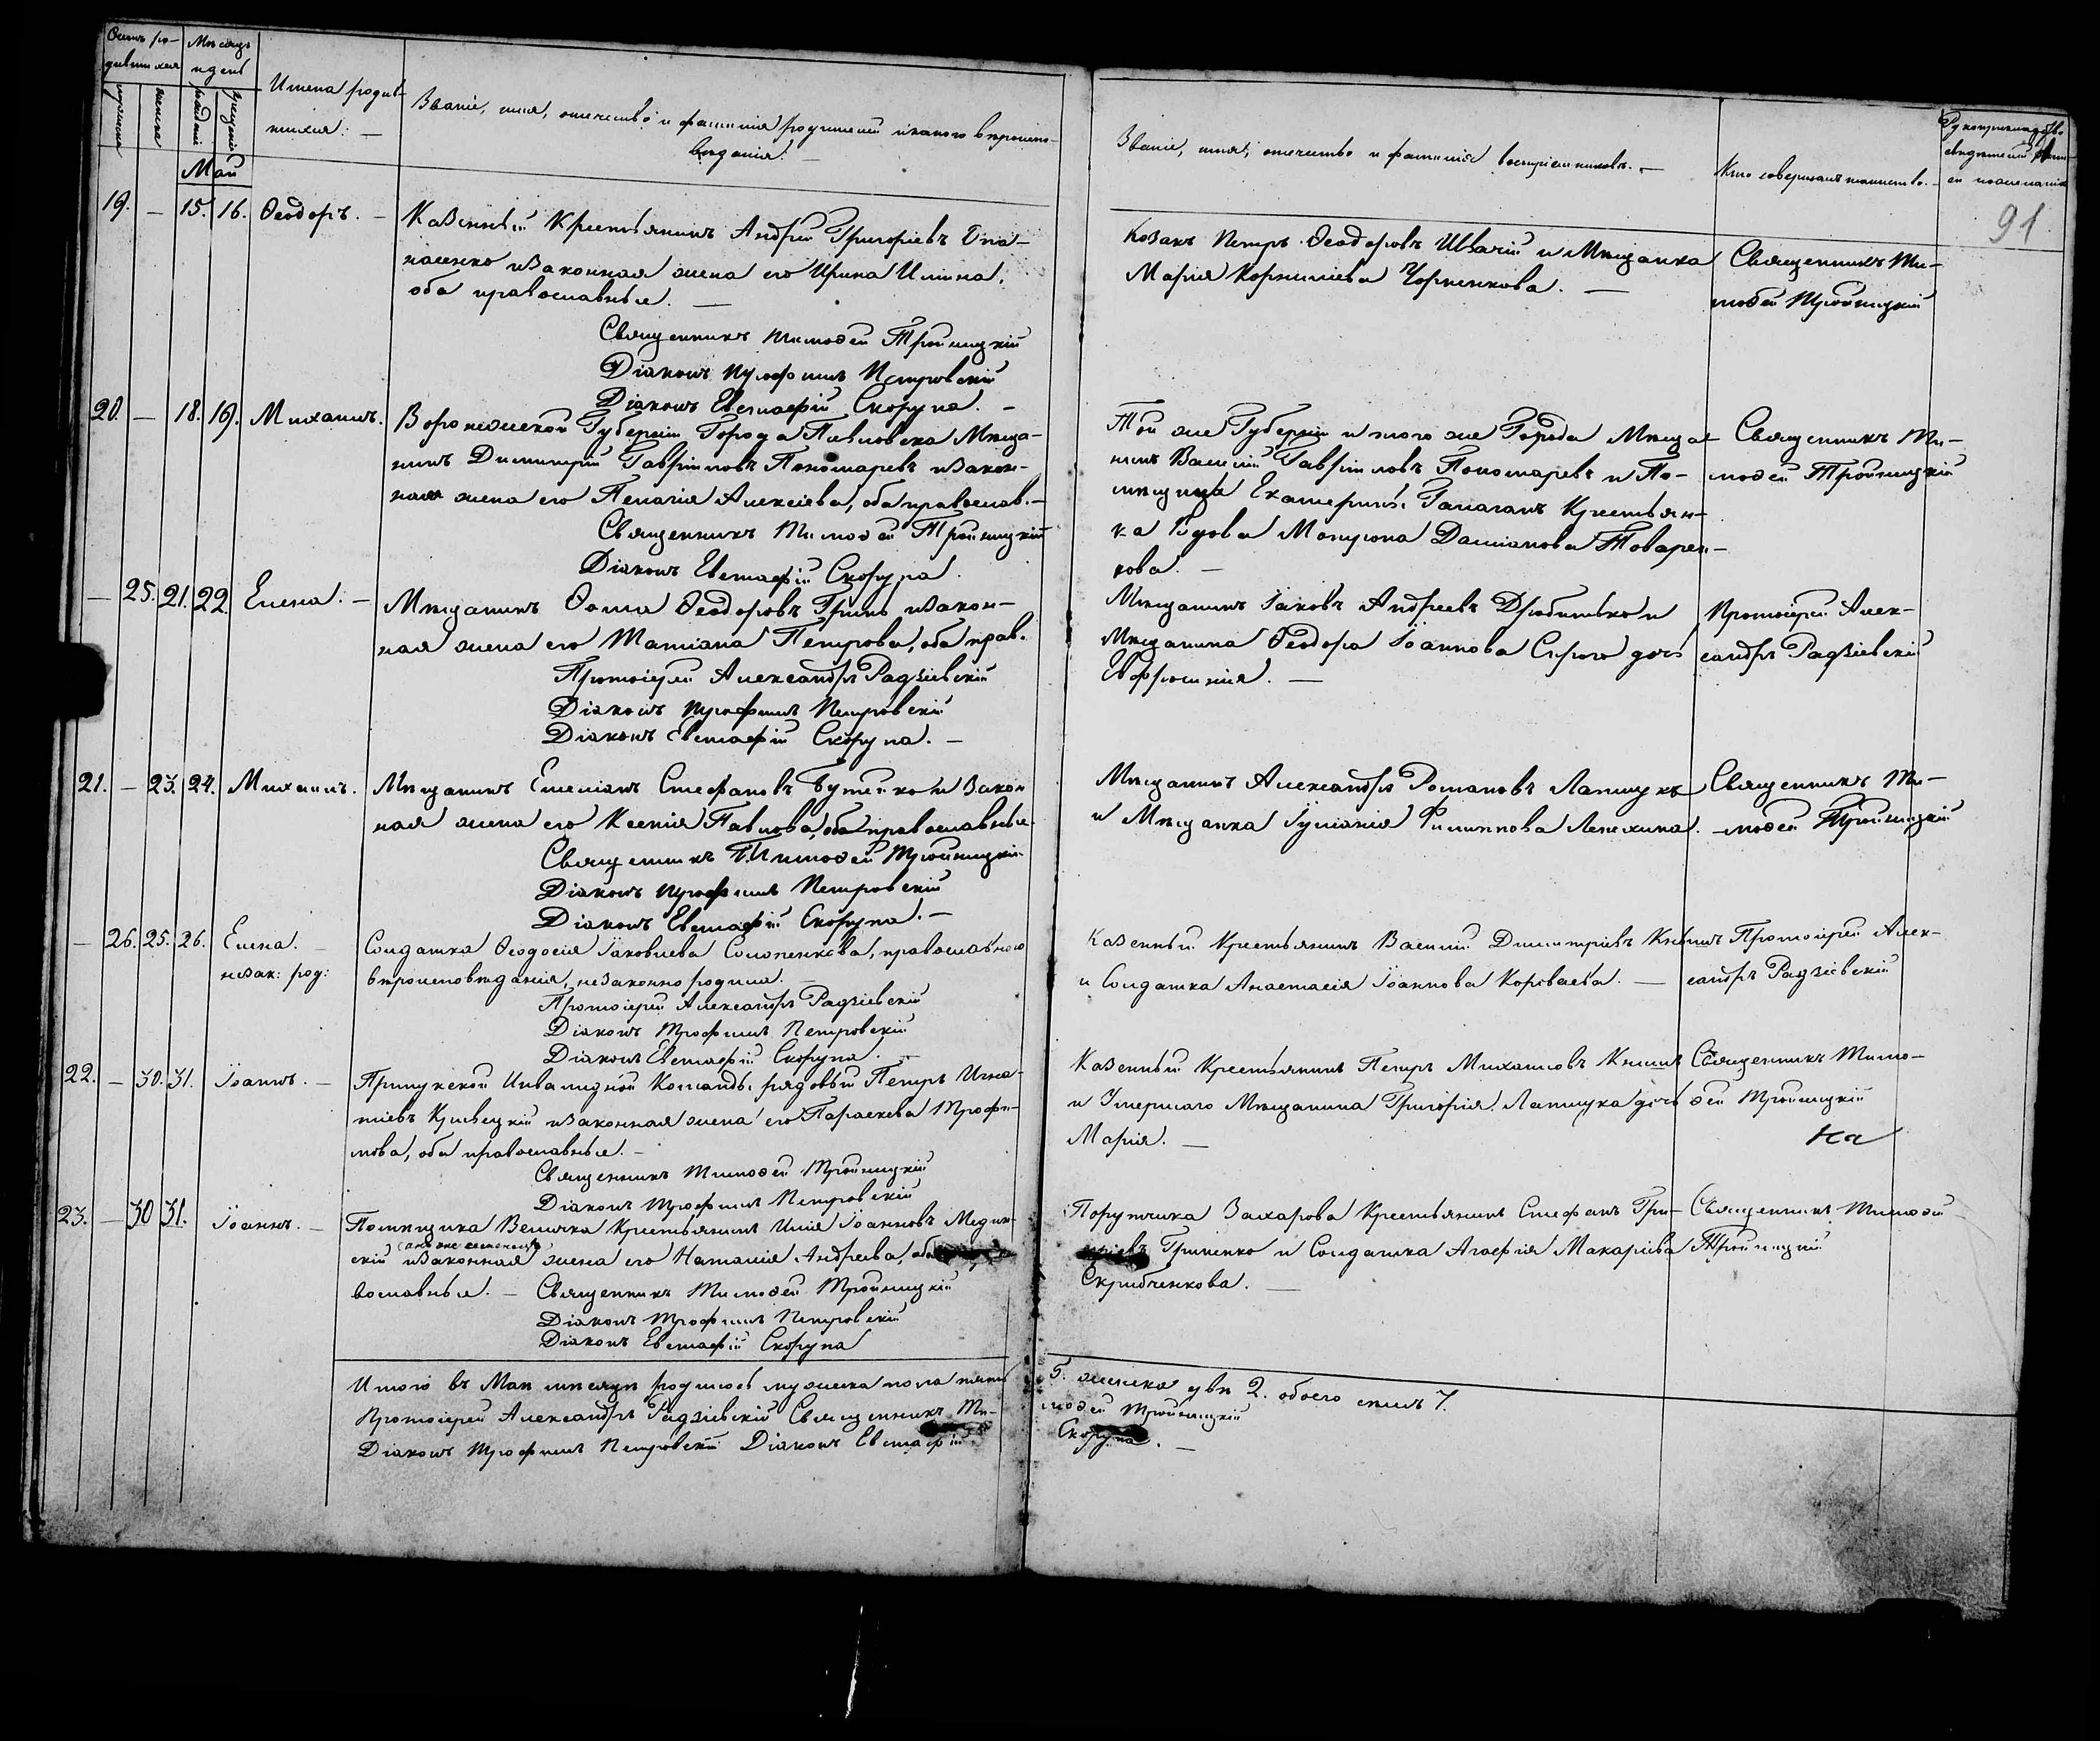 Счетъ ро-
дившихся
Мѣсяцъ
и день
мужеска
женска
рожденія
крещенія
Имена родив-
шихся: —
Званіе, имя, отечество и фамилія родителей и какого вѣроиспо-
вѣданія: —
Званіе, имя, отечество и фамилія воспріемниковъ. —
Кто совершалъ таинство. —
Рукоприкладство
свидетелей
91
Май
19. — 15. 16. Ѳеодоръ. —
Казенный Крестьянинъ Андрей Григоріевъ Опа-
насенко и законная жена его Ирина Ильина,
оба православные. —
Священникъ Тимоѳей Тройницкій
Діаконъ Трофимъ Петровскій
Діаконъ Евстафій Скорупа. —
Козакъ Петръ Ѳеодоровъ Швачій и Мещанка
Марія Корнилиева Чорненкова. —
Священникъ Ти-
моѳей Тройницкій
20. — 18. 19. Михаилъ.
Воронежской Губерніи Города Павловска Меща-
нинъ Димитрій Гавріиловъ Пономаревъ и закон-
ная жена его Пелагія Алексіева, оба православ. —
Священникъ Тимоѳей Тройницкій
Діаконъ Евстафій Скорупа.
Той же Губерніи и того же Города Меща-
нинъ Василій Гавріиловъ Пономаревъ и По-
мещицы Екатерины Галаганъ Крестьян-
ка Вдова Мотрона Даміанова Товарен-
кова. —
Священникъ Ти-
моѳей Тройницкій
— 25. 21. 22. Елена. —
Мещанинъ Ѳома Ѳеодоровъ Гринь и закон-
ная жена его Татіана Петрова, оба прав.
Протоіерей Александръ Радзіевскій
Діаконъ Трофимъ Петровскій
Діаконъ Евстафій Скорупа. —
Мещанинъ Іаковъ Андреевъ Дробитько и
Мещанина Ѳеодора Іоаннова Сѣрого дочь
Евфросинія. —
Протоіерей Алек-
сандръ Радзіевскій
21. — 23. 24. Михаилъ.
Мещанинъ Емеліанъ Стефановъ Бутенко и закон
ная жена его Ксенія Павлова, оба православные
Священникъ Тимоѳей Тройницкій
Діаконъ Трофимъ Петровскій
Діаконъ Евстафій Скорупа. —
Мещанинъ Александръ Романовъ Лапшукъ
и Мещанка Іуліанія Филиппова Лепехина.
Священникъ Ти-
моѳей Тройницкій
— 26. 25. 26. Елена. —
незак: род:
Солдатка Ѳеодосія Іаковлева Солопенкова, православного
вѣроисповѣданія, незаконно родила. —
Протоіерей Александръ Радзіевскій
Діаконъ Трофимъ Петровскій
Діаконъ Евстафій Скорупа. —
Казенный Крестьянинъ Василій Димитріевъ Книшъ
и Солдатка Анастасія Іоаннова Корсваева. —
Протоіерей Алек-
сандръ Радзіевскій
22. — 30. 31. Іоаннъ. —
Прилукской Инвалидной Команды рядовый Петръ Игна-
тіевъ Кривецкій и законная жена его Параскева Трофи-
мова, оба православные. —
Священникъ Тимоѳей Тройницкій
Діаконъ Трофимъ Петровскій
Казенный Крестьянинъ Петръ Михаиловъ Книшъ
и Умершаго Мещанина Григорія Лапшука дочь
Марія. —
Священникъ Тимо-
ѳей Тройницкій
На
23. — 30 31. Іоаннъ. —
Помещика Велична Крестьянинъ Илія Іоанновъ Медин-
скій и законная жена его Наталія Андреева, оба
вославные. — Священникъ Тимоѳей Тройницкій
Діаконъ Трофимъ Петровскій
Діаконъ Евстафій Скорупа
Поручика Захарова Крестьянинъ Стефанъ Гри-
Гриненко и Солдатка Агафія Макаріева
Скрибченкова. —
Священникъ Тимоѳей
Тройницкій
Итого въ Маи месяце родилось мужеска пола пять 5. женска две 2. обоего силъ 7.
Протоіерей Александръ Радзіевскій Священникъ Ти-моѳей Тройницкій
Діаконъ Трофимъ Петровскій Діаконъ Евстафій Скорупа. —